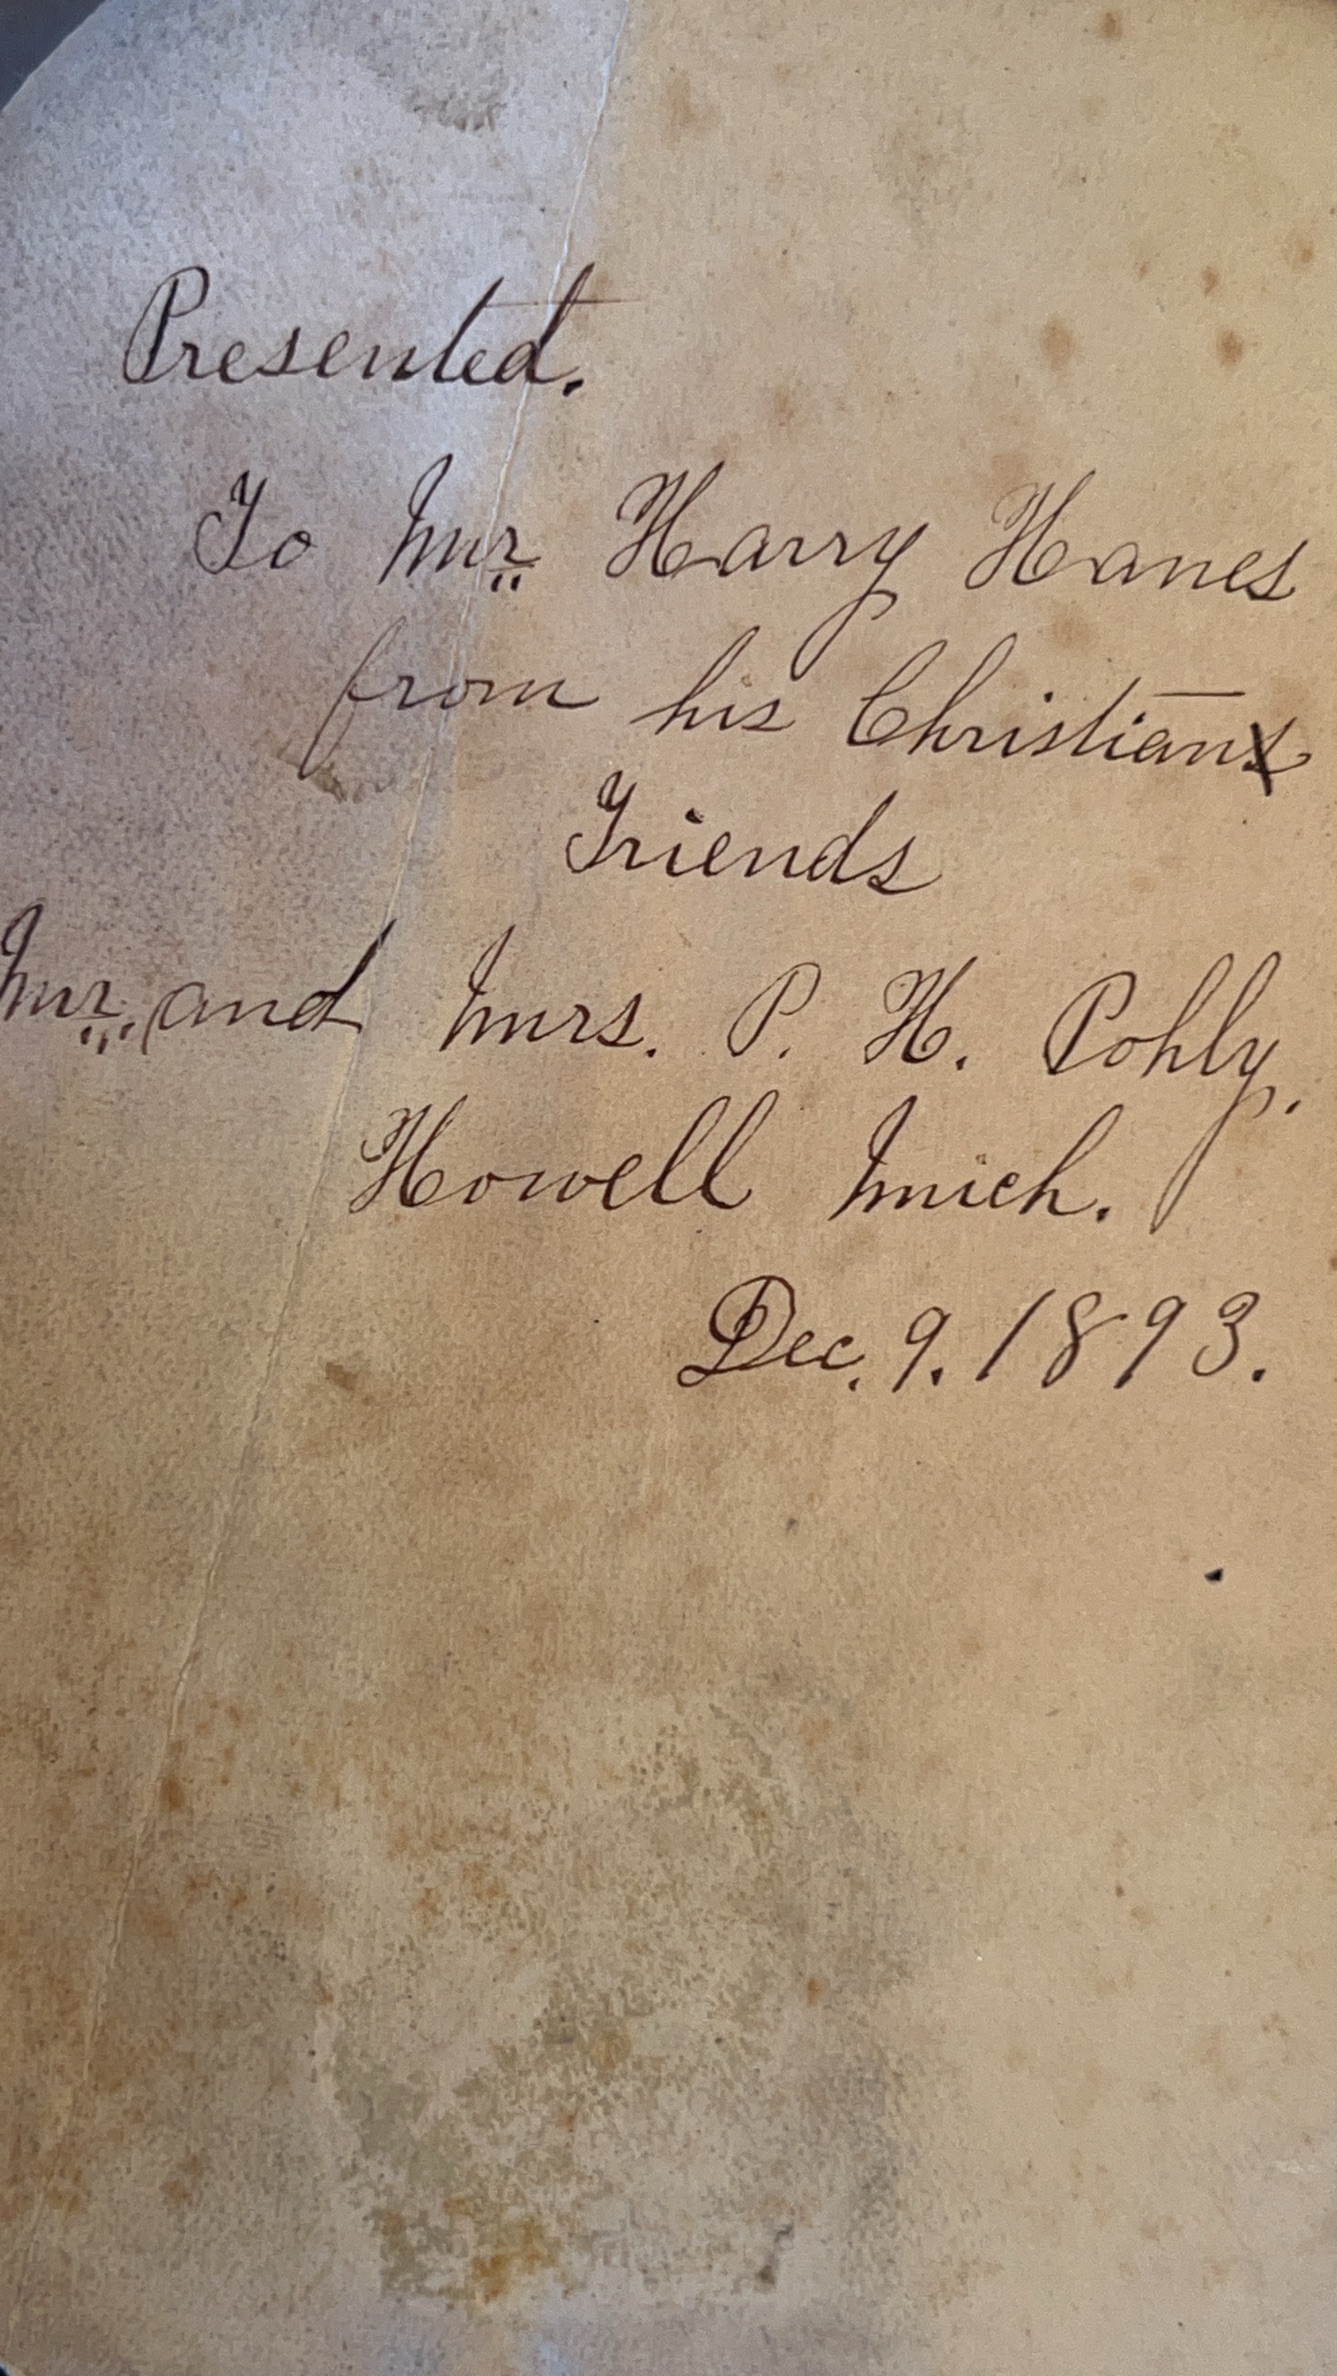 Presented.
To Mr. Harry Hanes
from his Christian
Friends
Mr. and Mrs. P. H. Pohly.
Howell Mich.
Dec. 9. 1893.